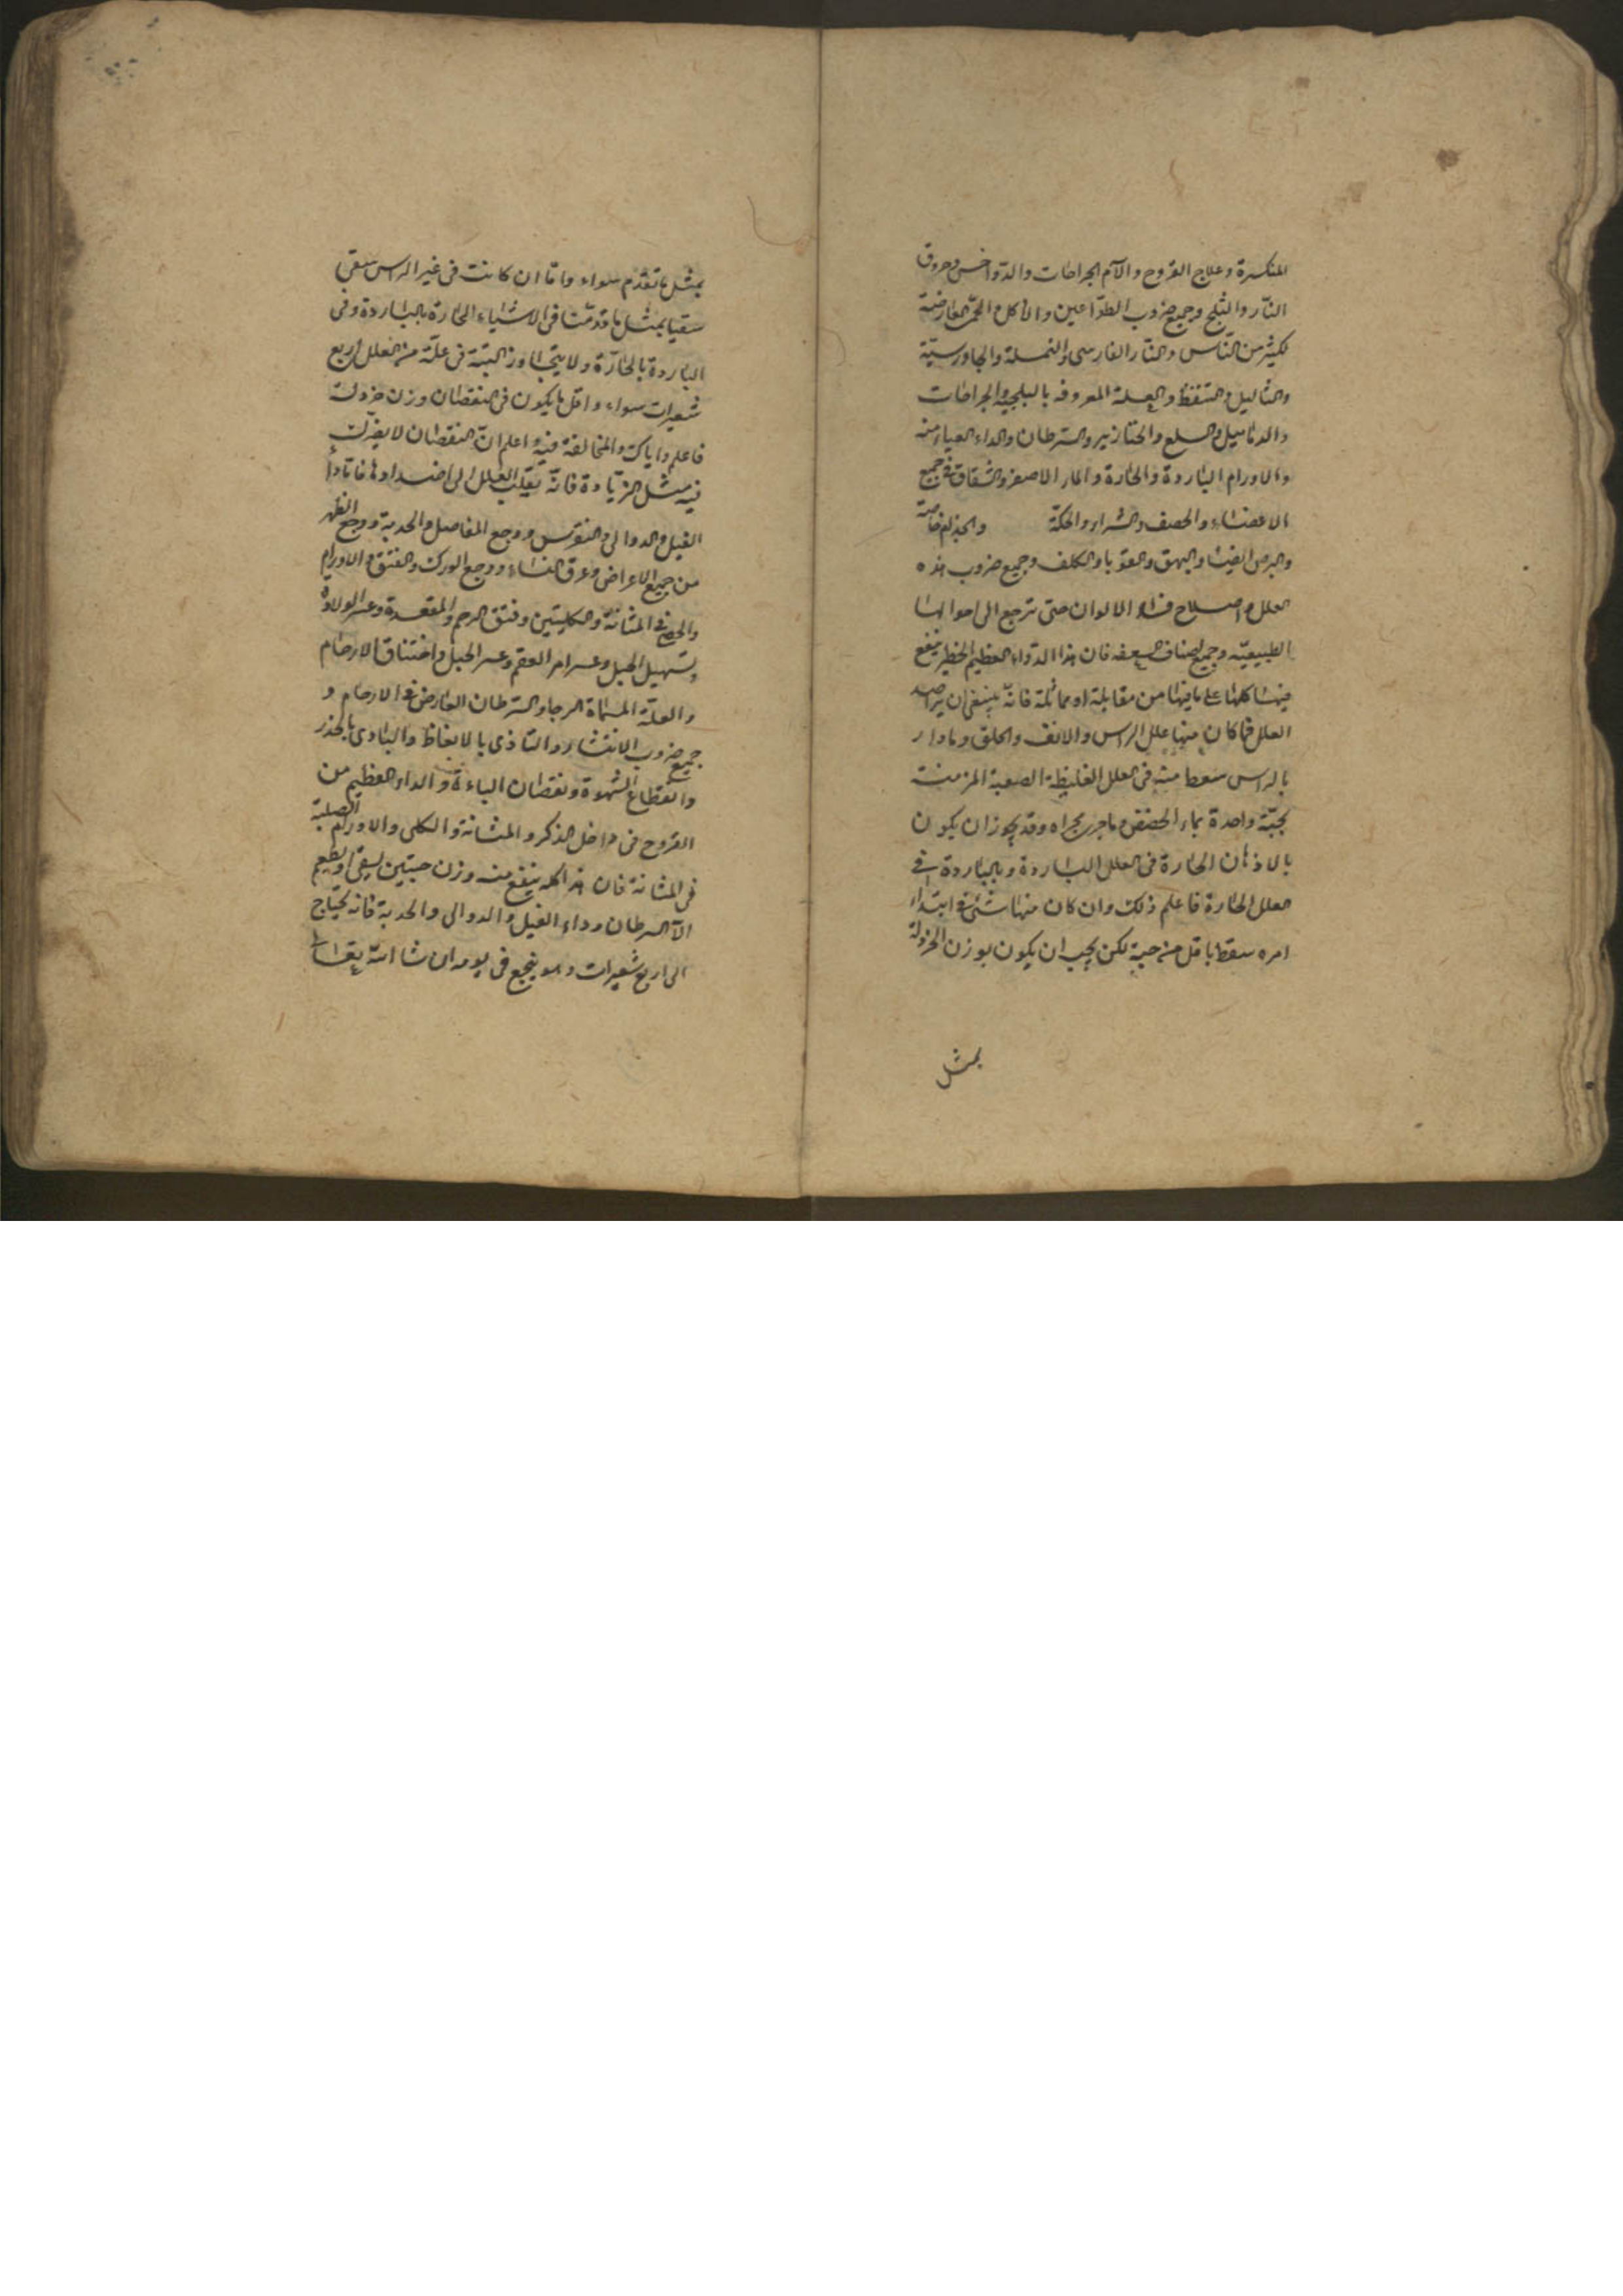 المنكسرة وعلاج القروح والآم الجراحات والدواخس وحروق
النار والثلج وجميع ضروب الطواعين والاكل الحمر العارضة
لكثير من الناس والنار الفارسى والنملة والجاورسية
والثاليل والتنفط والعلة المعروفة بالبلجيه والجراحات
والدماميل والسلع والخنازير والسرطان والداء العياء منه
والاورام الباردة والحارة والمار الاصفر والشقاق فى جميع
الاعضاء والحصف والشراء والحكة والجذام خاصة
والبرص ايضا والبهق والقوبا والكلف وجميع ضروب هذه
العلل واصلاح فساد الالوان حتى ترجع الى احوالها
الطبيعيّه وجميع اصناف السعفه فان هذا الدواء العظيم الخطر ينفع
فيها كلها على ما فيها من مقابلة او مماثلة فانه ينبغى ان يراصد
العلل فما كان منها علل الراس والانف والحلق وما دار
بالراس سعط منه فى العلل الغليظة الصعبة المزمنة
بحبّة واحدة بماء الحضض وما جرى مجراه وقد يجوز ان يكون
بالاذهان الحارة فى العلل الباردة وبالباردة فى
العلل الحارة فاعلم ذلك وان كان منها شئ فى ابتداء
امره سعط باقل من حبة لكن يجب ان يكون بوزن الخردلة
بمثل
بمثل ما تقدم سواء واما ان كانت فى غير الراس سقى
سقيا بمثل ما قدمنا فى الاشياء الحارة بالباردة وفى
الباردة بالحارة ولا يتجاوز البتة فى علة من العلل اربع
شعيرات سواء واقل ما يكون فى النقصان وزن خردلة
فاعلم واياك والمخالفة فيه واعلم ان النقصان لا يضرك
فيه مثل الزيادة فانه يقلب العلل الى اضدادها فاما داء
الفيل والدوالى والنقرس ووجع المفاصل والحدبة ووجع الظهر
من جميع الاعراض وعرق النساء ووجع الورك والفتق والاورام
والحصى فى المثانة والكليتين وفتق الرحم والمقعدة وعسر الولادة
وتسهيل الحبل وعسر امر العقم وعسر الحبل واختناق الارحام
والعلّة المسماة الرجا والسرطان العارض فى الارحام و
جميع ضروب الانتشار والتاذى بالانعاظ والبادى بالخدر
وانقطاع الشهوة ونقصان الباءة والداء العظيم من
القروح فى داخل الذكر والمثانة والكلى والاورام الصلبة
فى المثانة فان هذا كله ينفع منه وزن حبتين يسقى او يطعم
الّا السرطان وداء الفيل والدوالى والحدبة فانه يحتاج
الى اربع شعيرات وهو ينجع فى يومه ان شا الله تعالى